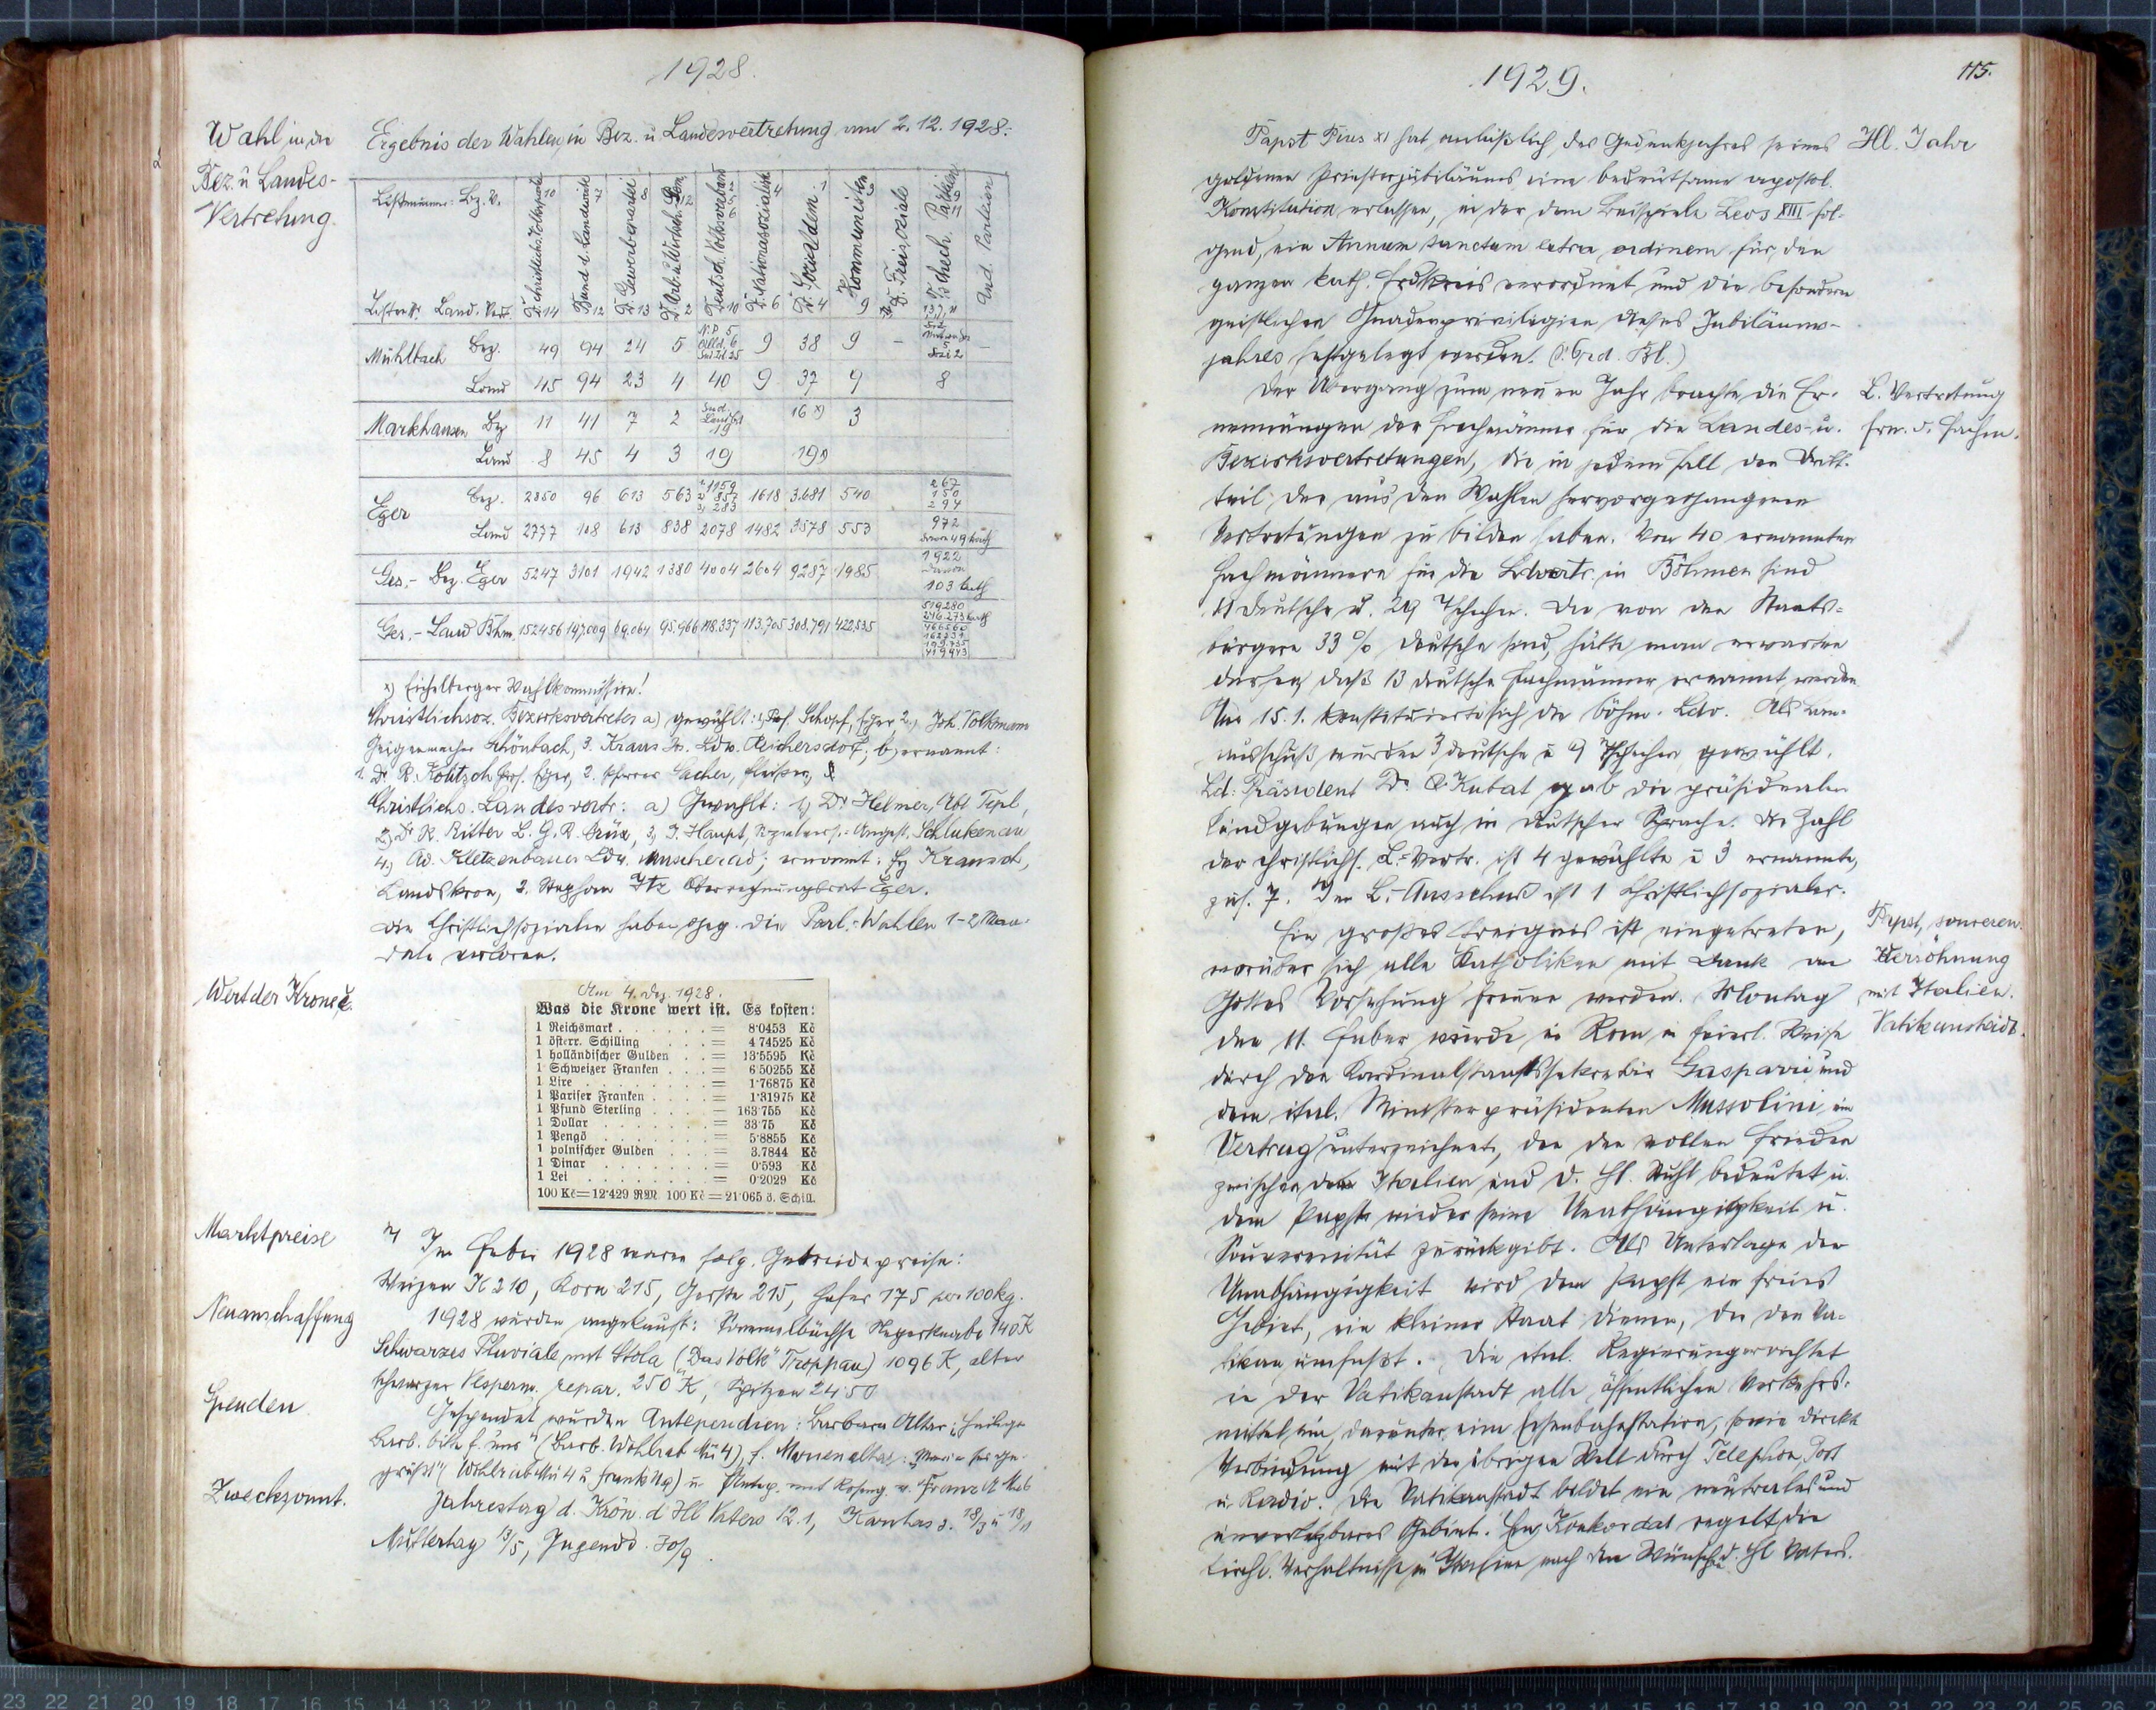 1928.
Wahl in die
Bez. u Landes-
Vertretung.
Ergebnis der Wahlen in Bez. u Landesvertretung am 2.12.1928.:
Bez. V.
Land. Vert.
D. christlichs. Volkspartei 10 14
Bund d. Landwirte 12
D. Gewerbepartei 8 13
2
Deutsch. Volksverband 10
D. Nationalsozialist. 4 6
D. Sozialdem. 1 4
Kommunisten 9
D. Freisoziale
Tschech. Parteien
And. Parteien
Mühlbach Bez. 49 94 24 5 9 38 9 – –
Land 45 94 23 4 40 9 37 9 8
Markhausen Bez 11 41 7 2 19 16 x) 3
Land 8 45 4 3 19 19
Eger Bez. 2850 96 613 563 1159 857 283 1618 3.681 540 267 150 294
Land 2777 108 613 838 2078 1482 3578 553 972
Ges.- Bez. Eger 5247 3101 1942 1380 4004 2604 9287 1985 1922 davon 103 kath
Ges.- Land Bhm. 152456 147.009 69.064 95.966 118.337 113.705 308.791 422.535 519.280
x) Eichelberger Wahlkommission!
Christlichsoz. Bezirksvertreter a) gewählt: 1) Prof. Schopf, Eger 2.) Joh. Volkmann
Geigenmacher Schönbach, 3. Kraus Ldw. Reichersdorf; b) ernannt:
1. Dr R. Kolitzsch Prof. Eger, 2. Pfarrer Sacher,
Christlichs. Landesvertr: a) Gewählt: 1) Dr Helmer, Abt Tepl,
2) Dr K. Ritter L. G. R. Brüx, 3) J. Haupt, Angest. Schluckenau
4) Ad. Kletzenbauer Ldw. ; ernannt: Kransch,
Landskron, 2. Stephan Itz Oberrechnungsrat Eger.
Die Christlichsozialen haben geg. die Parl.-Wahlen 1-2 Man-
date verloren.
Wert der Krone č.
Am 4. Dez. 1928.
Was die Krone wert ist. Es kosten:
1 Reichsmark . . . . . . = 8·0453 Kč
1 österr. Schilling . . . = 4 74525 Kč
1 holländischer Gulden . . = 13·5595 Kč
1 Schweizer Franken . . . = 6·50255 Kč
1 Lire . . . . . . . . = 1·76875 Kč
1 Pariser Franken . . . . = 1·31975 Kč
1 Pfund Sterling . . . . = 163·755 Kč
1 Dollar . . . . . . . = 33·75 Kč
1 Pengö . . . . . . . = 5·8855 Kč
1 polnischer Gulden . . . = 3.7844 Kč
1 Dinar . . . . . . . = 0·593 Kč
1 Lei . . . . . . . . = 0·2029 Kč
100 Kč=12·429 RM 100 Kč=21·065 ö. Schill.
Marktpreise
Im Feber 1928 waren folg. Getreidepreise:
Weizen K 210, Korn 215, Gerste 215, Hafer 175 per 100 kg.
Neuanschaffung
1928 wurden angekauft: Sammelbüchse Negerknabe 140 K
Schwarzes Pluviale mit Stola ("Das Volk" Troppau) 1096 K, alter
schwarzer Vesperm. repar. 250 K, Spitzen 24·50
Spenden
Gespendet wurden Antependien: Barbara Altar: "Heilige
Barb. bitt f. uns" (Barb. Wohlrab Mü 4), f. Marienaltar: "Maria sei ge-
grüßt" (Wohlrab Mü 4 u Frank 119) u
Zwecksonnt.
Jahrestag d. Krön. d. Hl Vaters 12.1, Karitas s. 18/3 u 18/11
Muttertag 13/5, Jugendd. 30/9.
1929.
115.
Papst Pius XI hat anläßlich des Gedenkjahres seines
Hl. Jahr
goldenen Priesterjubiläums eine bedeutsame apostol.
Konstitution erlassen, in der dem Beispiele Leos XIII fol-
gend, ein Annum sanctum extra ordinem für den
ganzen kath. Erdkreis verordnet und die besonderen
geistlichen Gnadenprivilegien dieses Jubiläums-
jahres festgelegt werden.
Der Übergang zum neuen Jahr brachte die Er-
L. Vertretung
nennungen der Fachmänner für die Landes- u.
Ern. d. Fachm.
Bezirksvertretungen, die in jedem Fall den Dritt-
teil der aus den Wahlen hervorgegangenen
Vertretungen zu bilden haben. Von 40 ernannten
Fachmännern für die Ldvertr. in Böhmen sind
11 Deutsche u. 29 Tschechen. Da von den Staats-
bürgern 33 % Deutsche sind, hätte man erwarten
dürfen, daß 13 deutsche Fachmänner ernannt werden.
Am 15.1. konstituierte sich die böhm. Ldv. Als Lan-
ausschuß wurden 3 Deutsche u 9 Tschechen gewählt.
Ld. Präsident Dr Kubat gab die präsidialen
Kundgebungen auch in deutscher Sprache. Die Zahl
der christlichs. L.-Vertr. ist 4 gewählte u 3 ernannte,
zus. 7. Im L.-Ausschuß ist 1 Christlichsozialer.
Ein großes Ereignis ist eingetreten,
Papst, souveren.
worüber sich alle Katholiken mit Dank an
Versöhnung
Gottes Vorsehung freuen werden. Montag
mit Italien.
den 11. Feber wurde in Rom in feierl. Weise
Vatikanstadt.
durch den Kardinalstaatssekretär Gasparri und
dem ital. Ministerpräsidenten Mussolini ein
Vertrag unterzeichnet, der den vollen Frieden
zwischen dem Italien und d. Hl. Stuhl bedeutet u.
dem Papste wieder seine Unabhängigkeit u.
Souverenität zurückgibt. Als Unterlage der
Unabhängigkeit wird dem Papst ein freies
Gebiet, ein kleiner Staat dienen, der den Va-
tikan umfaßt. Die ital. Regierung errichtet
in der Vatikanstadt alle öffentlichen Verkehrs-
mittel ein, darunter eine Eisenbahnstation, sowie direkte
Verbindung mit der übrigen Welt durch Telephon, Post
u. Radio. Die Vatikanstadt bildet ein neutrales und
unverletzbares Gebiet. Ein Konkordat regelt die
kirchl. Verhältnisse in Italien nach den Wünschen d. Hl Vaters.